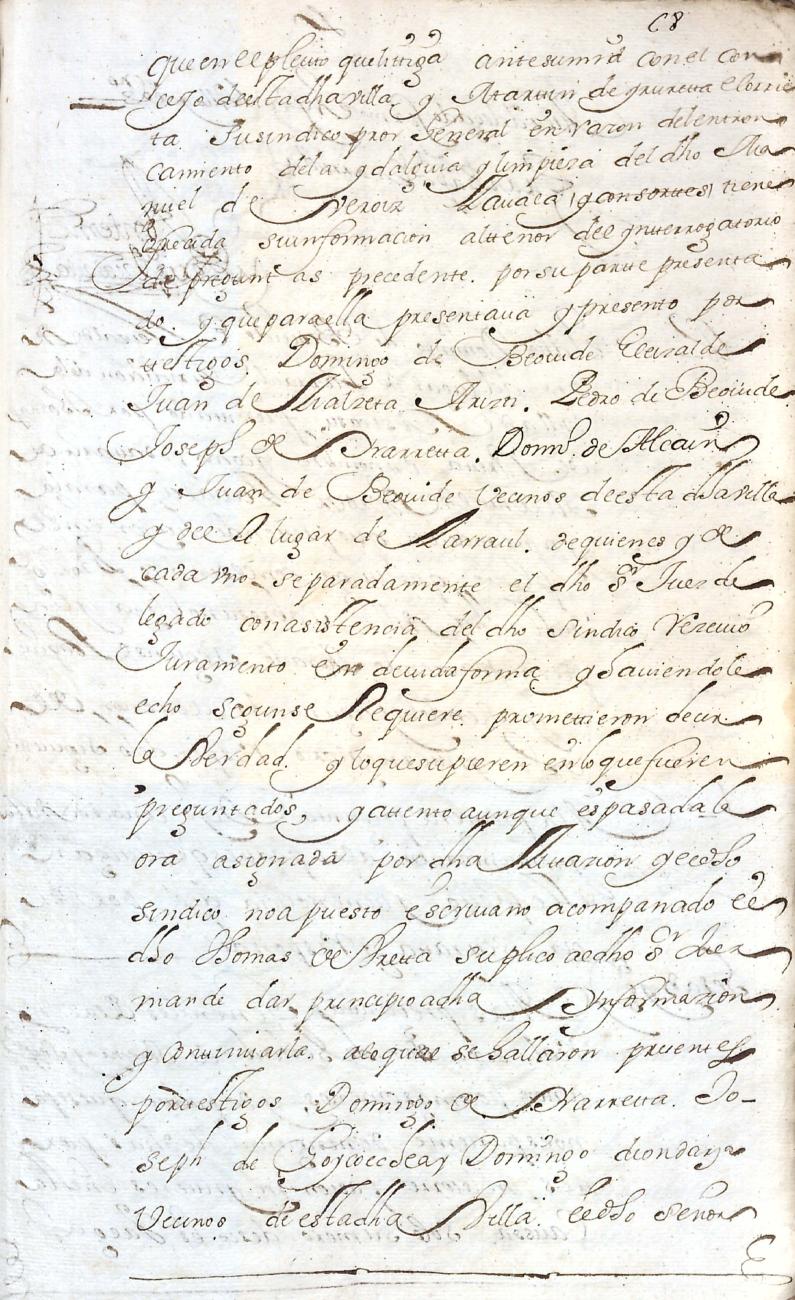 68
que en el pleito que litiga ante su mrd con el con
cejo de esta dha villa y Martin de yruretta elorrie
ta su sindico pror General en razon del entron
camiento de la ydalguia y limpieza del dho Ma
nuel de Veroiz Lavaca y consortes tiene
ofrecida su informacion al tenor del ynterrogatorio
de preguntas precedente por su parte presenta
do. y que para ella presentava y presento por
testigos. Domingo de Beovide Eleizalde
Juan de Arizti. Pedro de Beovide
Joseph de Yharretta. Domo. de Alcain
y Juan de Beovide Vecinos de esta dha villa
y del lugar de Larraul. de quienes y de
cada uno separadamente el dho Sr Juez de
legado con asistencia del dho sindico Recivio
Juramento en devida forma y haviendole
echo segun se Requiere. promettieron decir
la Verdad. y lo que supieren en lo que fueren
preguntados, y atento aunque es pasada la
ora asignada por dha y el dho
sindico no a puesto escrivano acompanado el
dho Thomas de suplico al dho Sr Juez
mande dar principio a dha Informazion
y continuarla. a lo qual se hallaron presentes
por testigos Domingo de Yharretta. Jo-
seph de Goycoechea y Domingo
Vecinos de esta dha Villa. el dho señor